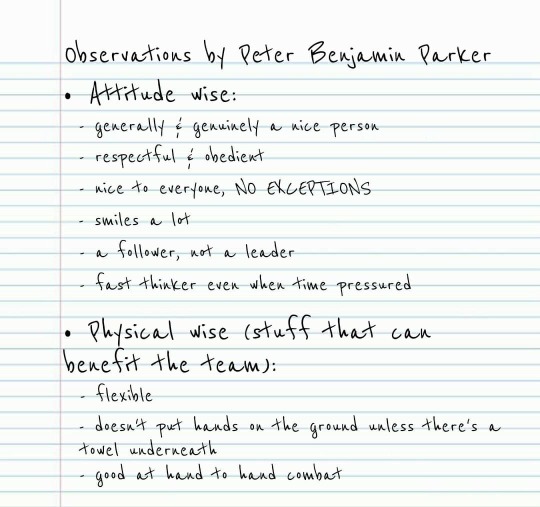 Observations by Peter Benjamin Parker
• Attitude wise:
- generally & genuinely a nice person
- respectful & obedient
- nice to everyone, NO EXCEPTIONS
- smiles a lot
- a follower, not a leader
- fast thinker even when time pressured
• Physical wise (stuff that can
benefit the team):
- flexible
- doesn't put hands on the ground unless there's a
towel underneath
- good at hand to hand combat